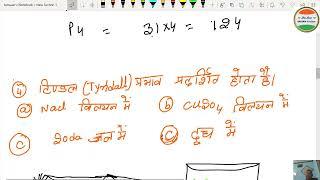 P4 = 31×4 = 124
④ टिण्डल (Tyndall) प्रभाव प्रदर्शित होता है।
ⓐ Nacl विलयन में ⓑ CuSO4 विलयन में
ⓒ Soda जल में ⓒ दूध में